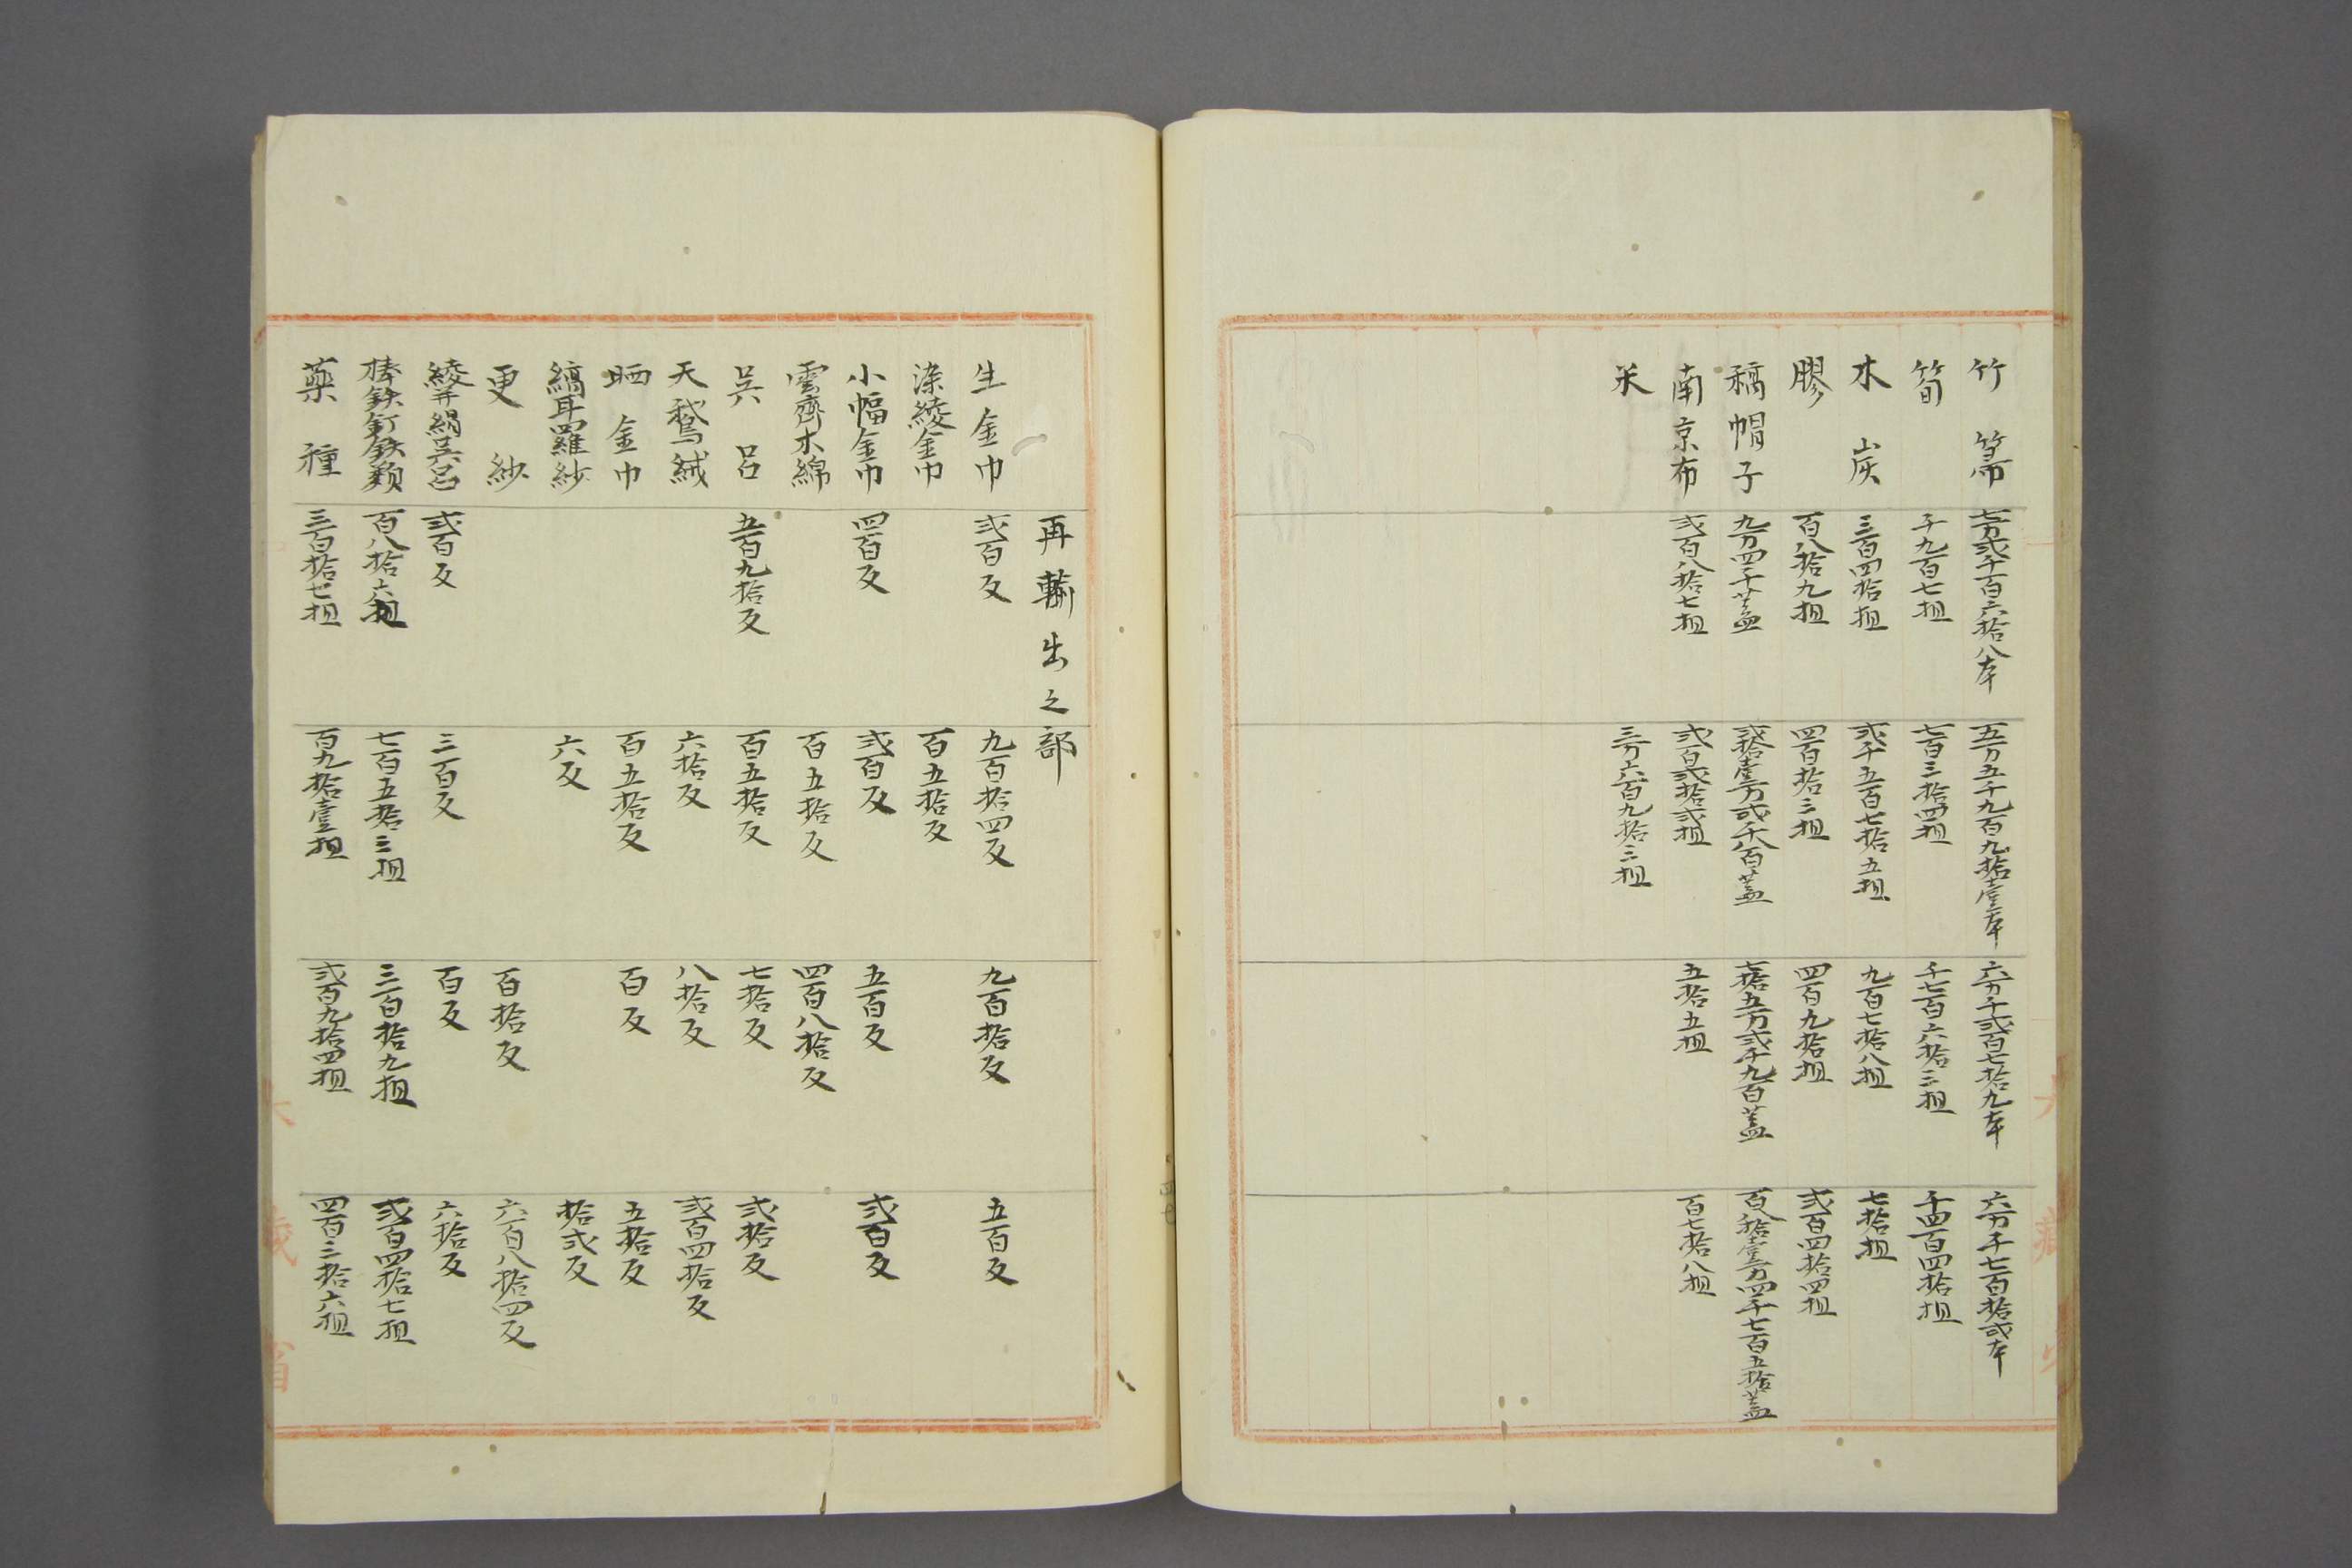 竹箒 七万弐千百六拾八本 五万五千九百九拾壹本 六万千弐百七拾九本 六万千七百拾弐本
筍 千九百七担 七百三拾四担 千七百六拾三担 千四百四拾担
木炭 三百四拾担 弐千五百七拾五担 九百七拾八担 七拾担
膠 百八拾九担 四百拾三担 四百九拾担 弐百四拾四担
稿帽子 九万四千蓋 弐拾壹万弐千八百蓋 七拾五万弐千九百蓋 百八拾壹万四千七百五拾蓋
南京布 弐百八拾七担 弐百弐拾弐担 五拾五担 百七拾八担
米 三万六百九拾三担
再輸出之部
生金巾 弐百反 九百拾四反 九百拾反 五百反
染綾金巾 百五拾反
小幅金巾 四百反 弐百反 五百反 弐百反
雲齊木綿 百五拾反 四百八拾反
呉呂 五百九拾反 百五拾反 七拾反 弐拾反
天鵞絨 六拾反 八拾反 弐百四拾反
晒金巾 百五拾反 百反 五拾反
縞耳羅紗 六反 拾弐反
更紗 百拾反 六百八拾四反
綾并絹呉呂 弐百反 三百反 百反 六拾反
棒鉄釘鉄類 百八拾六担 七百五拾三担 三百拾九担 弐百四拾七担
薬種 三百拾七担 百九拾壹担 弐百九拾四担 四百三拾六担